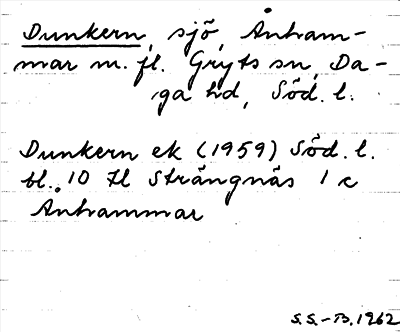 Dunkern, sjö, Ånham-
mar m. fl. Gryts sn, Da-
ga hd, Söd. l.
Dunkern ek (1959) Söd. l.
bl. 10 Il Strängnäs 1 c
Ånhammar
S.S.-B. 1962